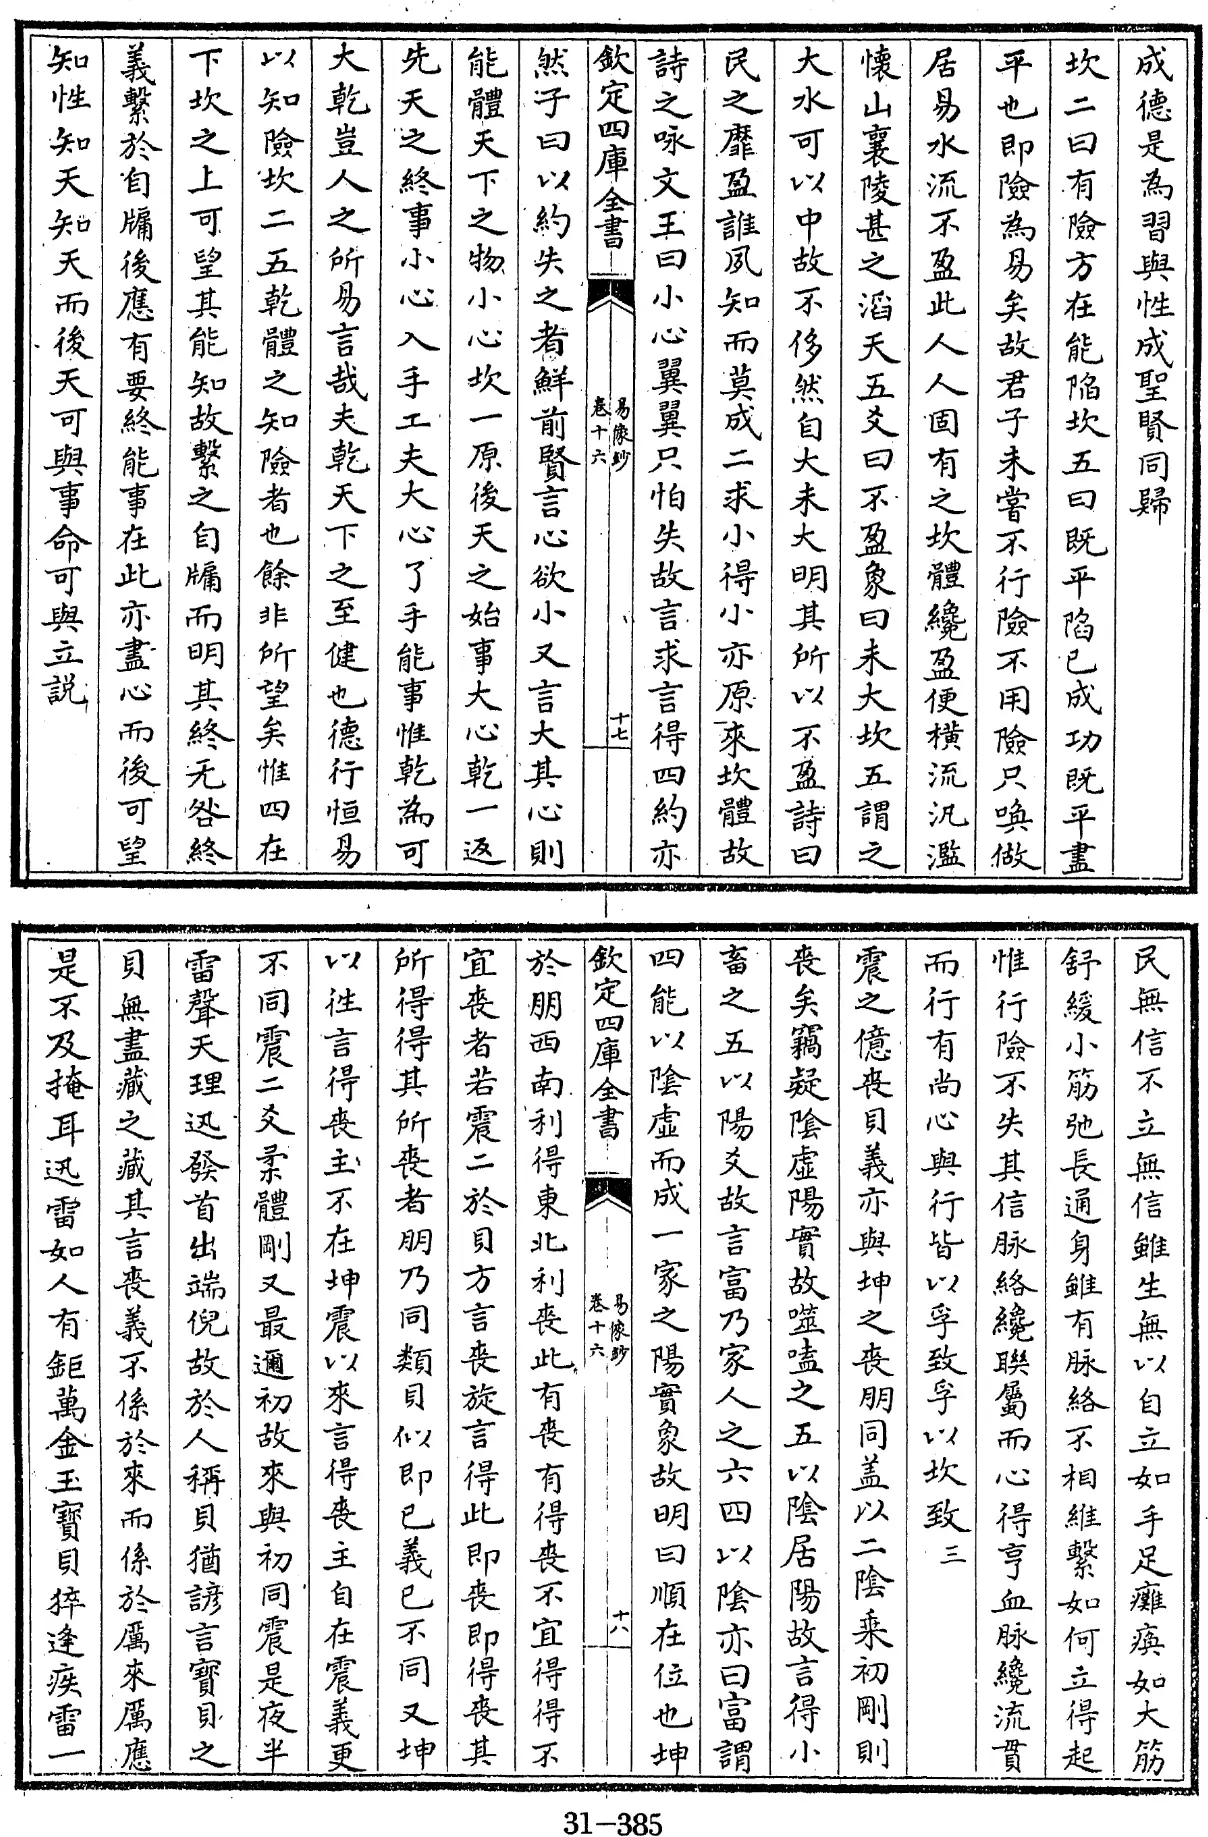 成德是為習與性成聖賢同歸
坎二曰有險方在能陷坎五曰既平陷已成功既平盡
平也即險為易矣故君子未嘗不行險不用險只喚做
居易水流不盈此人人固有之坎體纔盈便橫流汎濫
懷山襄陵甚之滔天五爻曰不盈象曰未大坎五謂之
大水可以中故不侈然自大未大明其所以不盈詩曰
民之靡盈誰夙知而莫成二求小得小亦原來坎體故
詩之咏文王曰小心翼翼只怕失故言求言得四約亦
欽定四庫全書
易像鈔
卷十六
十七
然子曰以約失之者鮮前賢言心欲小又言大其心則
能體天下之物小心坎一原後天之始事大心乾一返
先天之終事小心入手工夫大心了手能事惟乾為可
大乾豈人之所易言哉夫乾天下之至健也德行恒易
以知險坎二五乾體之知險者也餘非所望矣惟四在
下坎之上可望其能知故繫之自牖而明其終无咎終
義繫於自牖後應有要終能事在此亦盡心而後可望
知性知天知天而後天可與事命可與立說
民無信不立無信雖生無以自立如手足癱瘓如大筋
舒緩小筋弛長通身雖有脉絡不相維繫如何立得起
惟行險不失其信脉絡纔聯屬而心得亨血脉纔流貫
而行有尚心與行皆以孚致孚以坎致三
震之億喪貝義亦與坤之喪朋同蓋以二陰乘初剛則
喪矣竊疑陰虛陽實故噬嗑之五以陰居陽故言得小
畜之五以陽爻故言富乃家人之六四以陰亦曰富謂
四能以陰虛而成一家之陽實象故明曰順在位也坤
欽定四庫全書
易像鈔
卷十六
十八
於朋西南利得東北利喪此有喪有得喪不宜得得不
宜喪者若震二於貝方言喪旋言得此即喪即得喪其
所得得其所喪者朋乃同類貝似即已義已不同又坤
以往言得喪主不在坤震以來言得喪主自在震義更
不同震二爻柔體剛又最邇初故來與初同震是夜半
雷聲天理迅發首出端倪故於人稱貝猶諺言寶貝之
貝無盡藏之藏其言喪義不係於來而係於厲來厲應
是不及掩耳迅雷如人有鉅萬金玉寶貝猝逢疾雷一
31-385